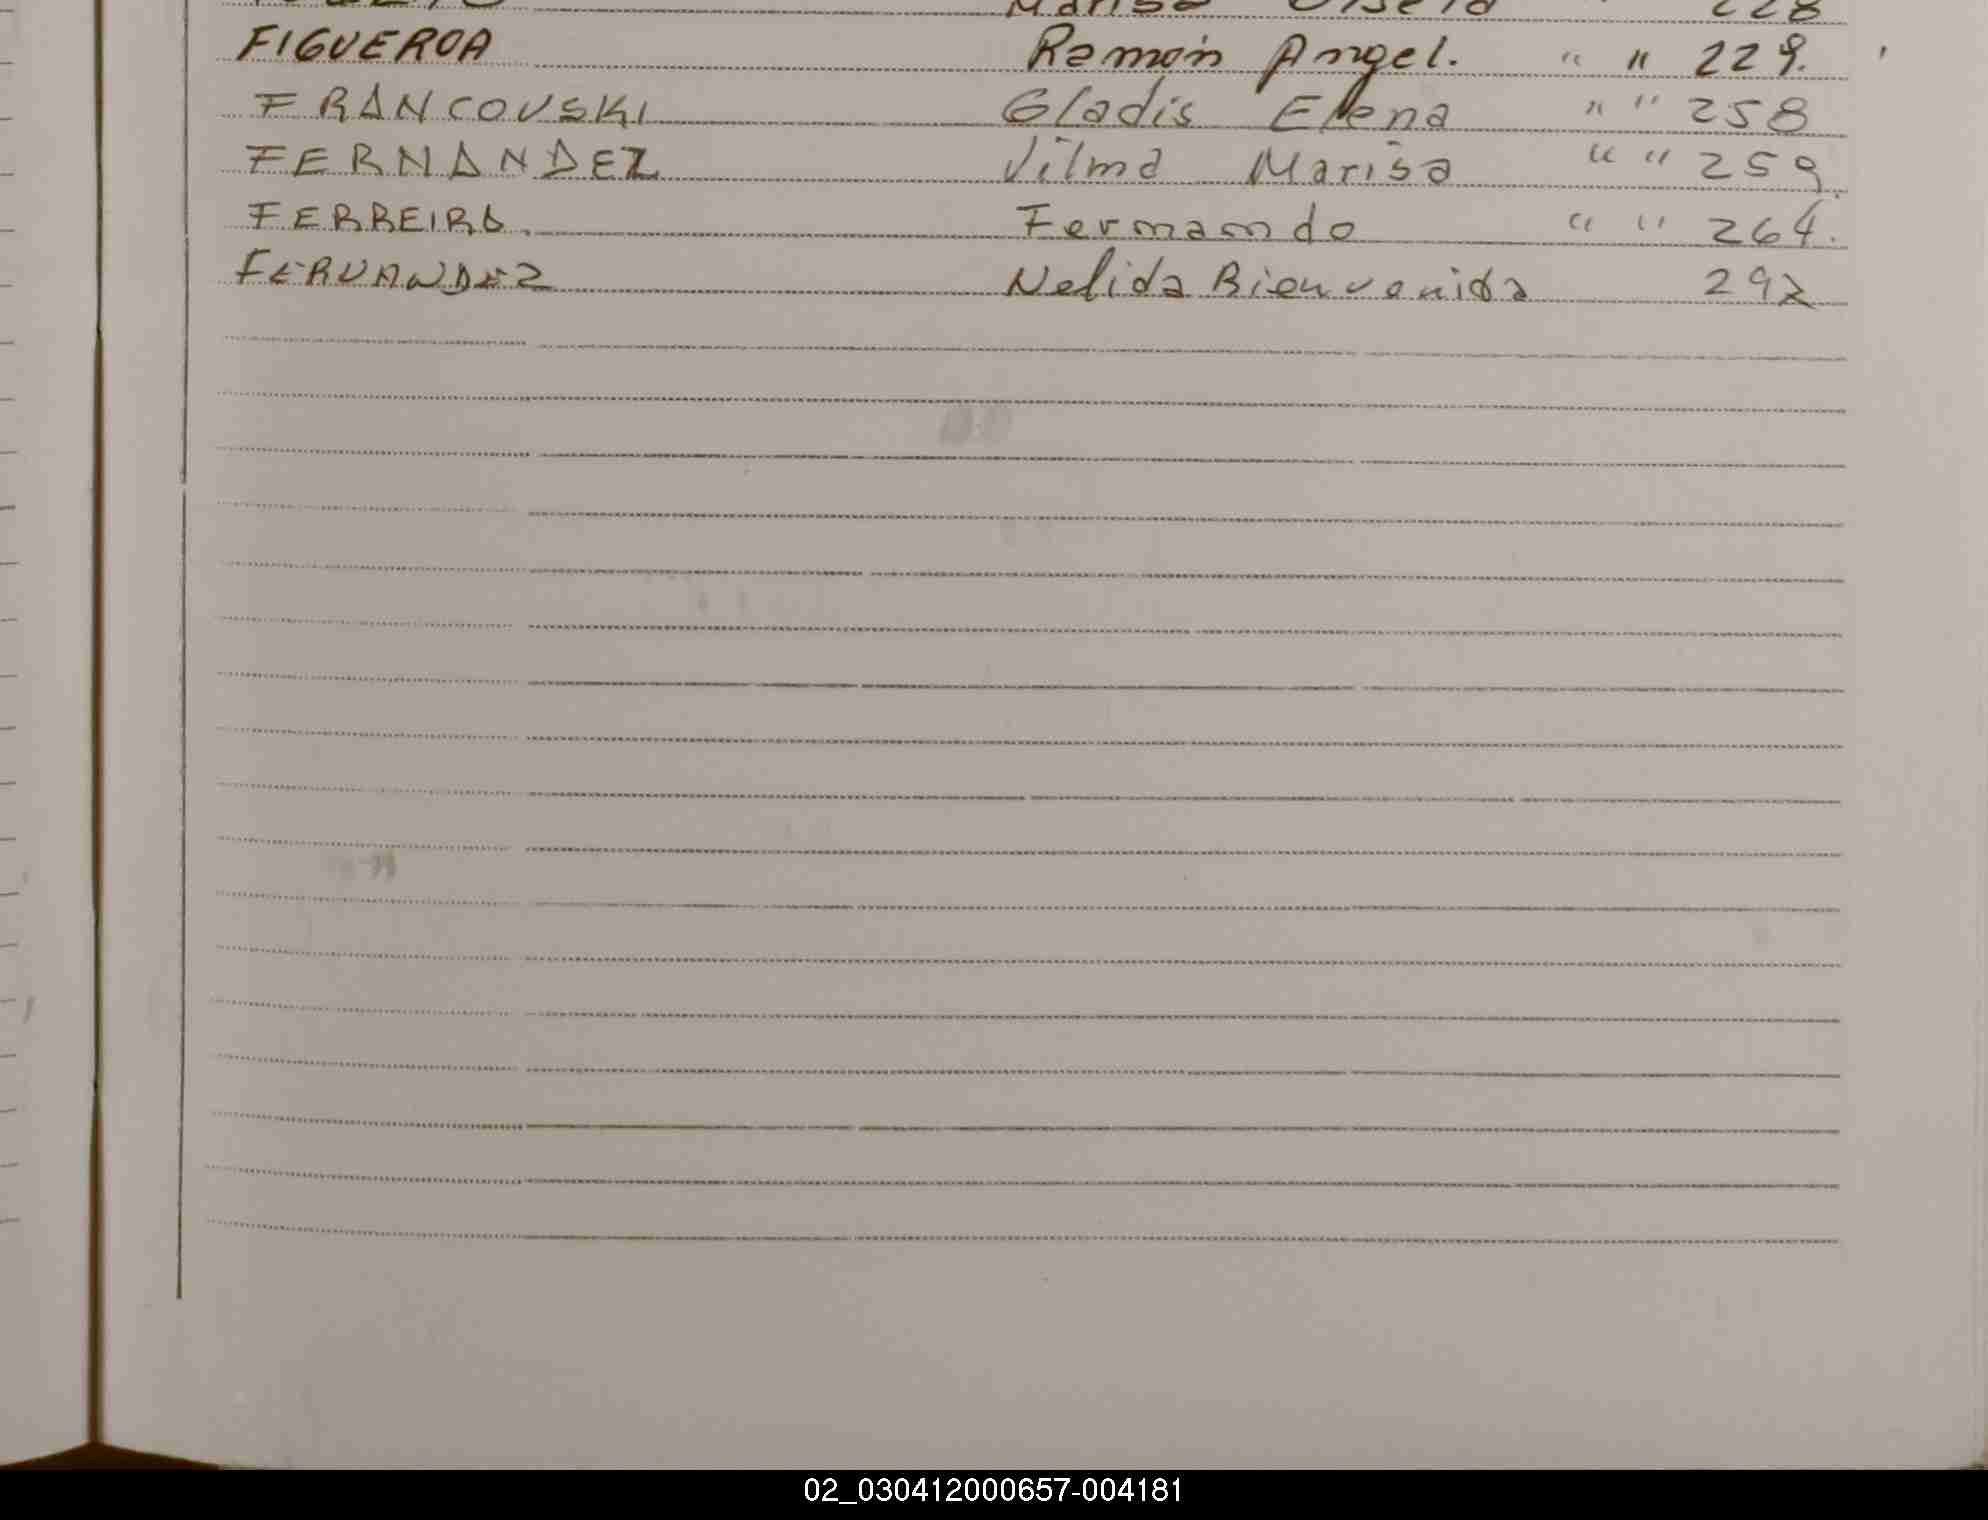 228
FIGUEROA Ramón Angel. " " 229.
FRANCOVSKI Gladis Elena " " 258
FERNANDEZ Vilma Marisa " " 259.
FERREIRO. Fernando " " 264.
FERNANDEZ Nelida Bienvenida 292
02_030412000657-004181